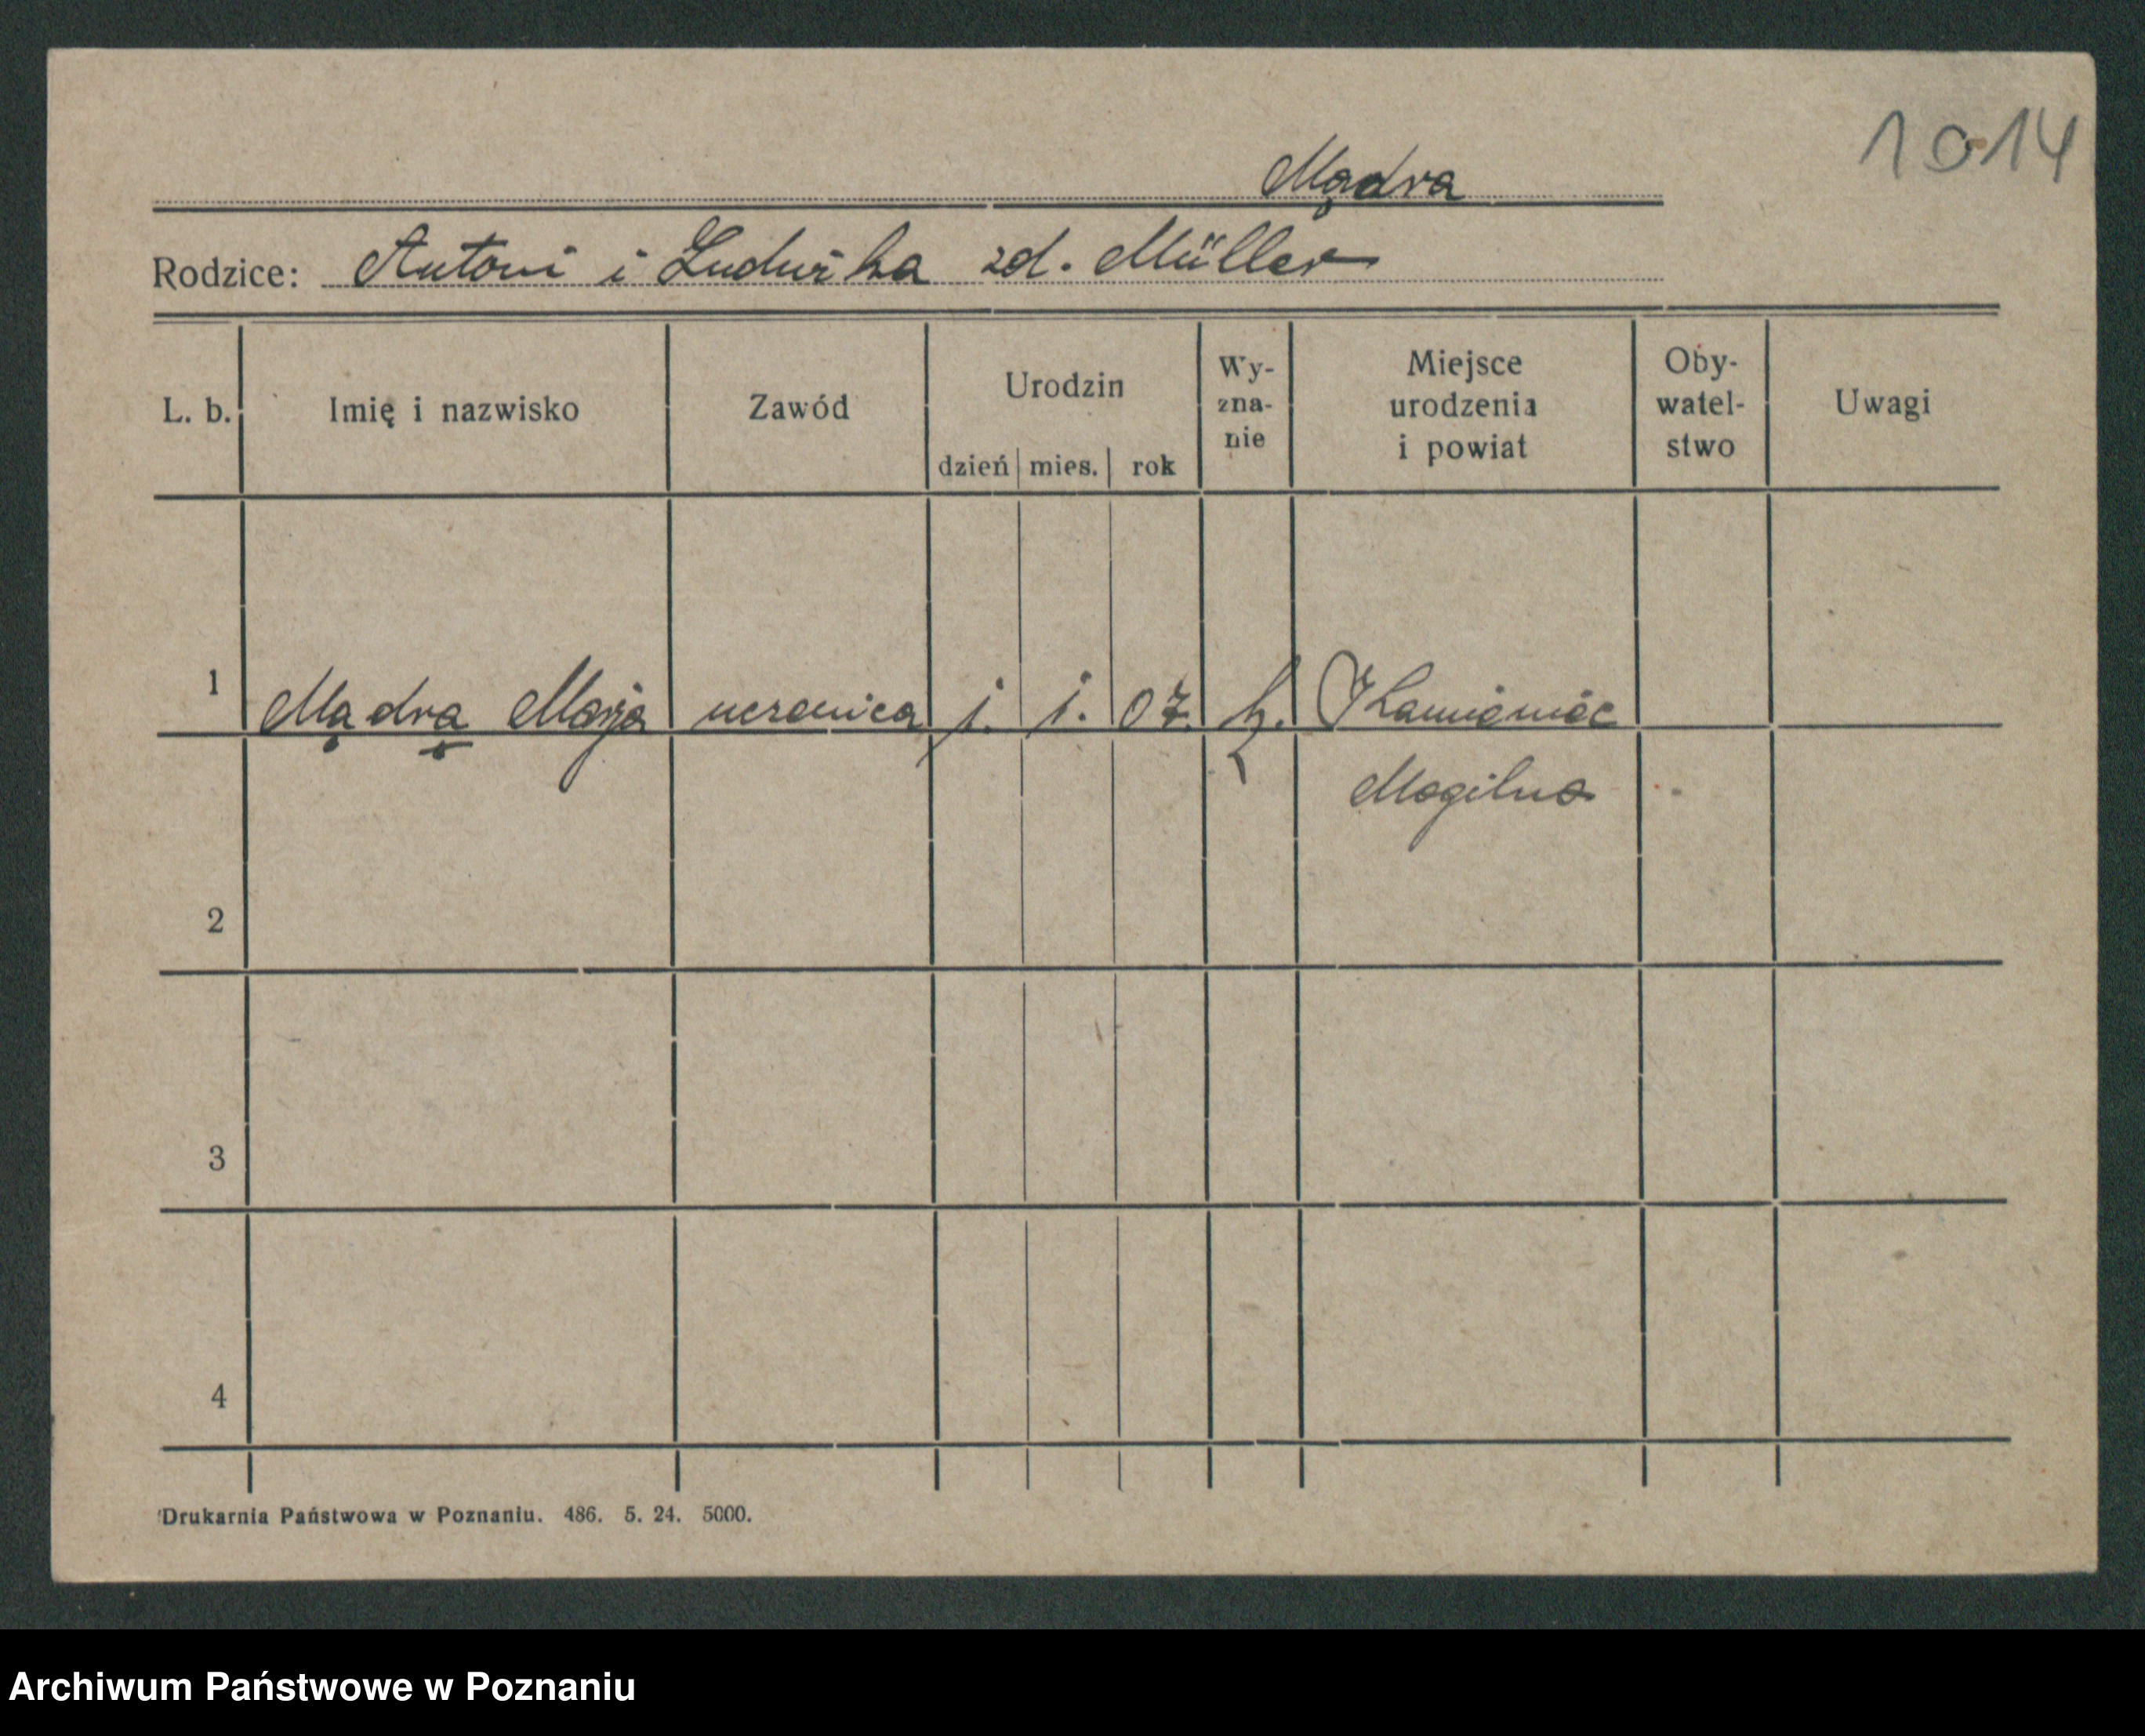 1014
Mądra
Rodzice: Antoni i Ludwika zd. Müller
L. b. Imię i nazwisko Zawód Urodzin dzień mies. rok Wy-zna-nie Miejsce urodzenia i powiat Oby-watel-stwo Uwagi
1 Mądra Marja uczenica 1. 1. 07. k. Kamieniec
Mogilno
2
3
4
Drukarnia Państwowa w Poznaniu. 486. 5. 24. 5000.
Archiwum Państwowe w Poznaniu